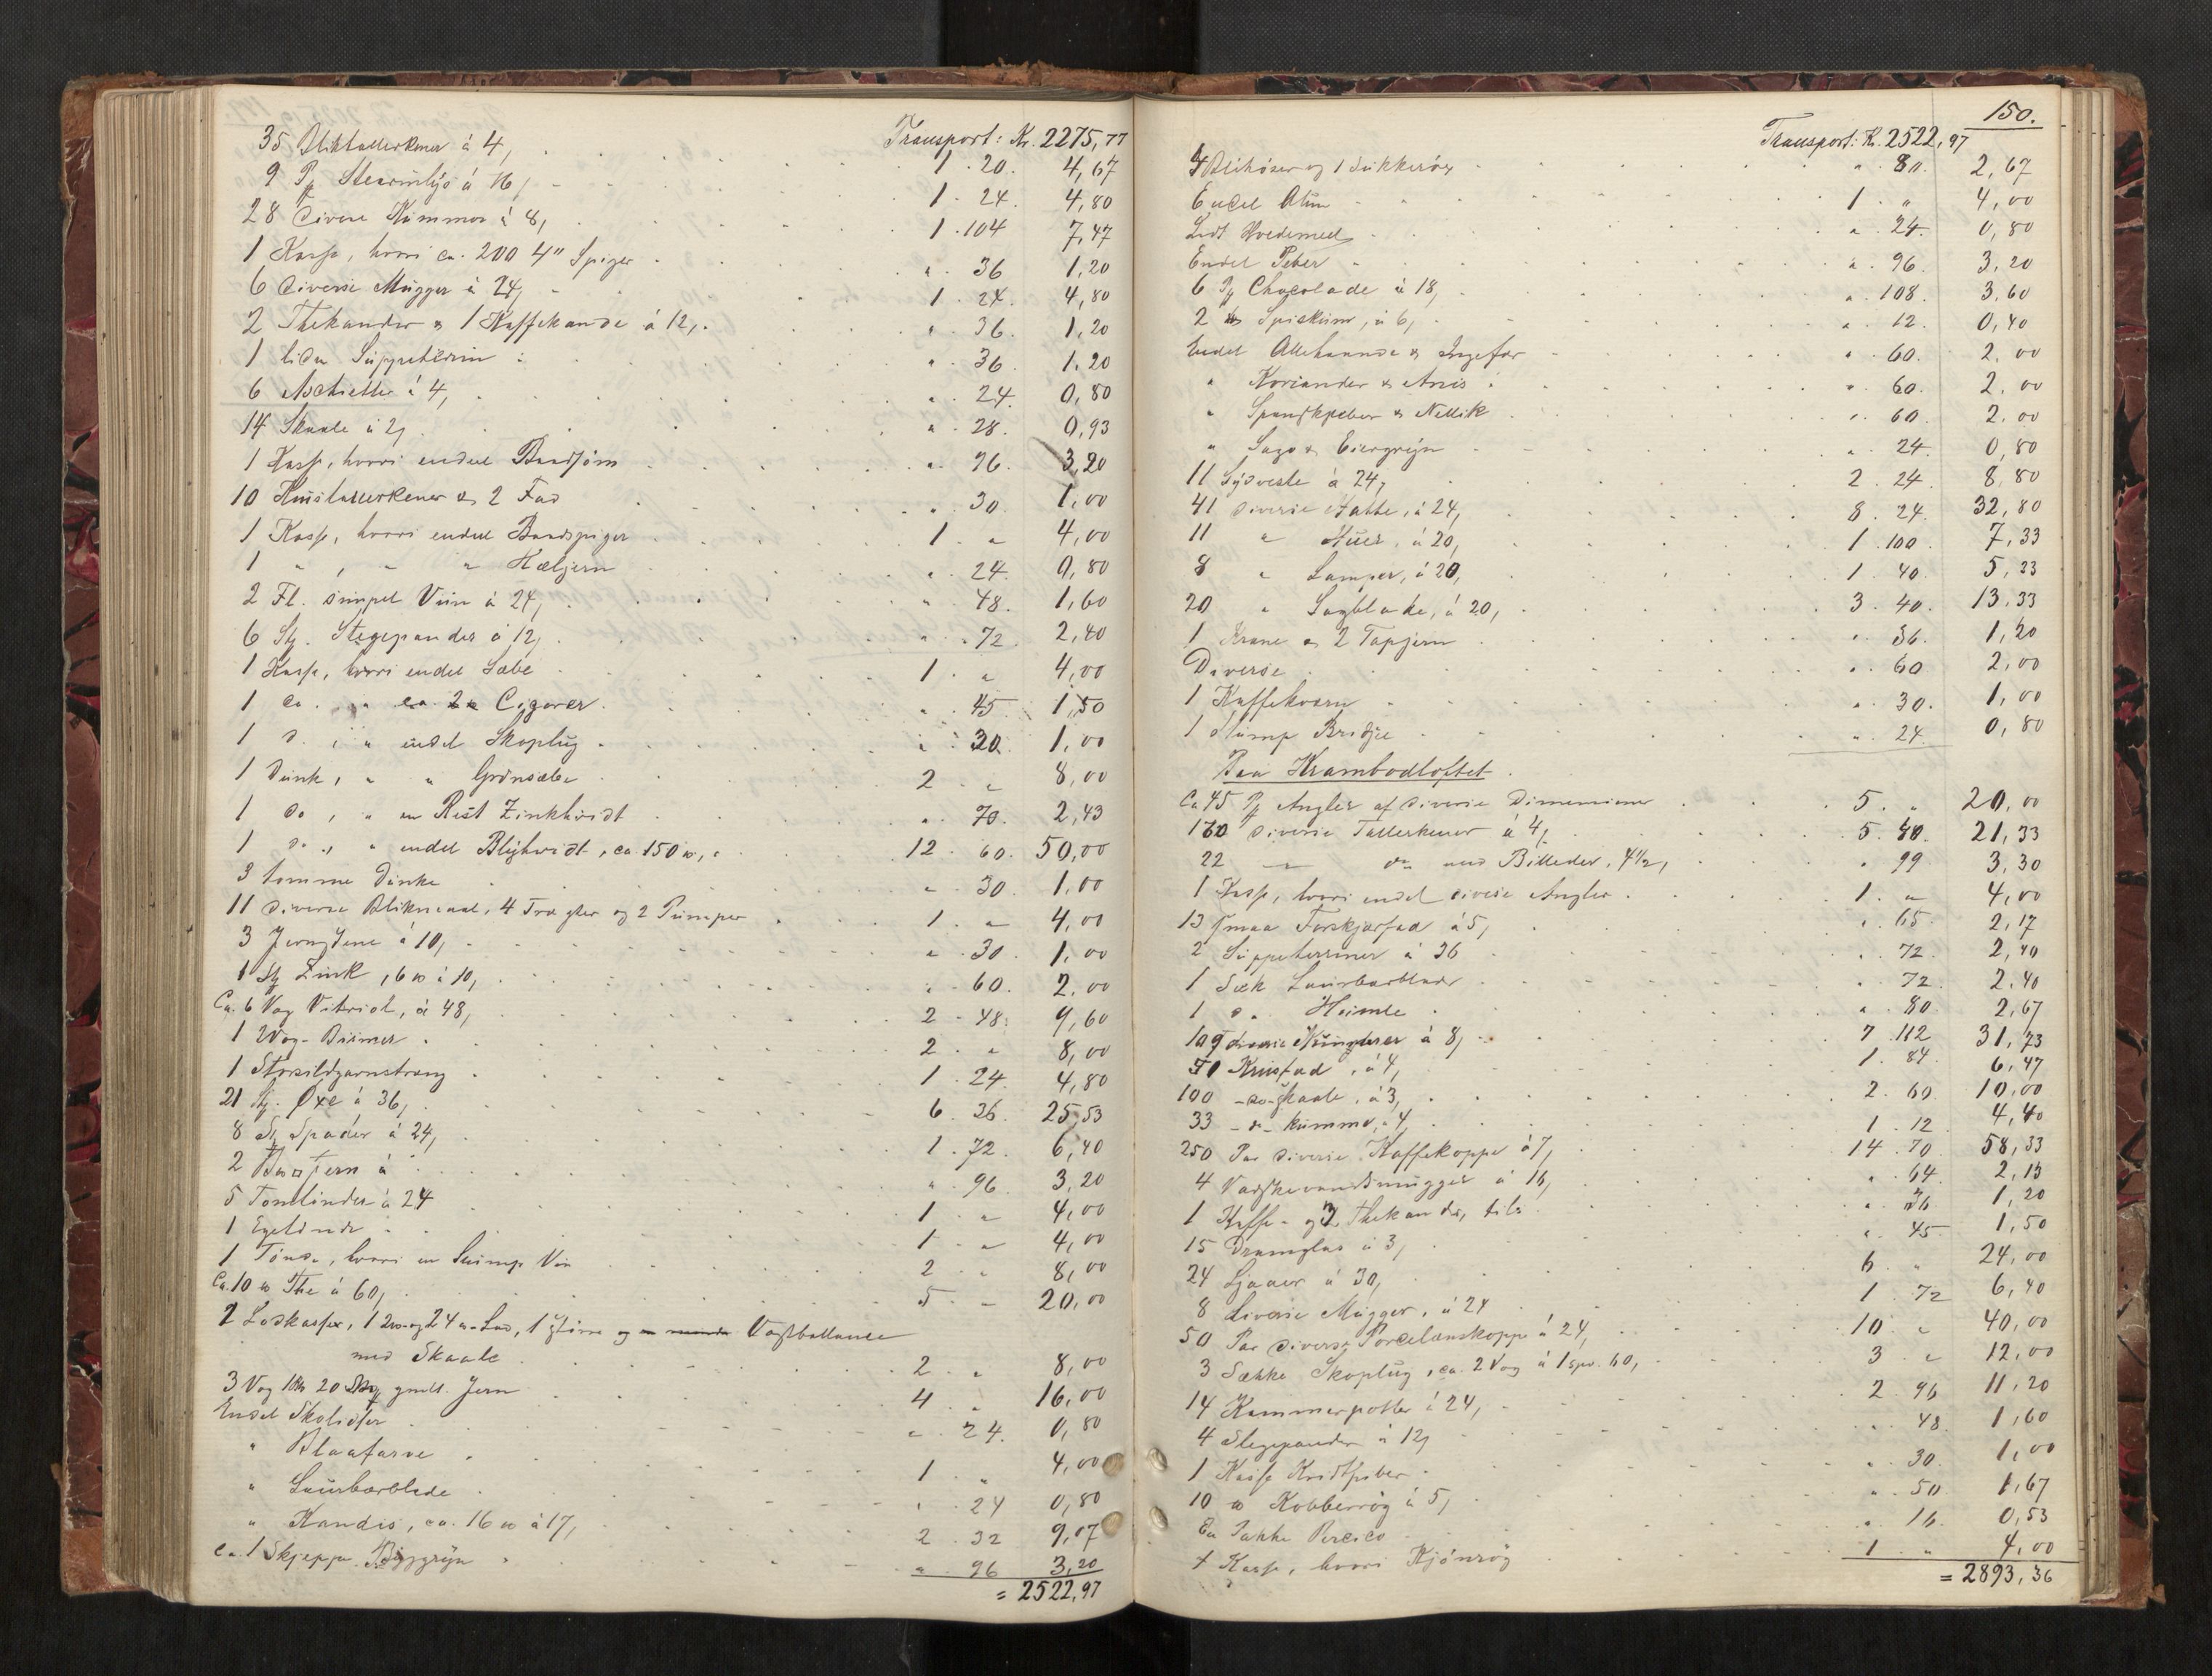 Transport: Kr. 2275,77
35 Bliktallerkener à 4, 1 . 20. 4,67
9 Pk Stearinlys à 16, 1 . 24. 4,80
28 diverse Kummer à 8, 1 . 104 7,47
1 Kasse, hvori ca. 200 4" Spiger " . 36 1,20
6 diverse Mugger à 24, 1 . 24. 4,80
2 Thekander & 1 Kaffekande à 12, " . 36. 1,20
1 liden Suppeterrin " . 36. 1,20
6 Aschietter à 4, " . 24. 0,80
14 Skaale à 2, " . 28. 0,93
1 Kasse, hvori endeel Baadsöm " . 96. 3,20
10 Krustallerkener & 2 Fad " . 30. 1,00
1 Kasse, hvori endeel Baadspiger 1 . " 4,00
1 " , " " Hæljern " . 24. 0,80
2 Fl. simpel Viin à 24, " . 48. 1,60
6 St. Stegepander à 12, " . 72. 2,40
1 Kasse, hvori endel Sæbe 1 . " 4,00
1 do. " Cigarer " . 45. 1,50
1 d. , " endel Skoplug " . 30. 1,00
1 Dunk, " " Grönsæbe 2 . " 8,00
1 do , " en Rest Zinkhvidt " . 70. 2,43
1 do , " endel Blyhvidt, ca. 150 12 . 60. 50,00
3 tomme Dunke " . 30. 1,00
11 diverse Blikmaal, 4 Tragter og 2 Pumper 1 . " 4,00
3 Jerngjene à 10, " . 30. 1,00
1 St Zink, 6 à 10, " . 60. 2,00
Ca. 6 Vog Vitriol, à 48, 2 . 48. 9,60
1 Vog-Bismer 2 . " 8,00
1 Storsildgarnstrang 1 . 24. 4,80
21 St. Øxe à 36, 6 . 36. 25,53
8 St Spader à 24, 1 . 72. 6,40
2 à " . 96. 3,20
5 Tomlinder à 24 1 . " 4,00
1 1 . " 4,00
1 Tønde, hvori en Slump Viin 2 . " 8,00
Ca. 10 The à 60, 5 . " 20,00
2 Lodkasser, 1 Vægtballance
med Skaale 2 . " 8,00
3 Vog 20 gmlt. Jern 4 . " 16,00
Endel Skolister " . 24. 0,80
" Blaafarve 1 . " 4,00
" Laurbærblade " . 24 0,80
" Kandis, ca. 16 à 17, 2 . 32 9,07
ca. 1 Skjeppe Byggryn " . 96 3,20
= 2522,97
150.
Transport: Kr. 2522,97
4 Blikdøser og 1 " . 80. 2,67
Endel Alun 1 . " 4,00
Lidt Hvedemeel " . 24. 0,80
Endel Peber " . 96. 3,20
6 Pk Chocolade à 18, " . 108. 3,60
2 Spiskum, à 6, " . 12. 0,40
Endel Allehaande & Ingefær " . 60. 2,00
" Koriander & Anis " . 60. 2,00
" Spanskpeber & Nellik " . 60 2,00
" Sago & Biergryn " . 24. 0,80
11 Sydveste à 24, 2 . 24. 8,80
41 diverse Hatte, à 24, 8 . 24. 32,80
11 " Huer, à 20, 1 . 100. 7,33
8 " Lamper, à 20, 1 . 40. 5,33
20 " Sagblade, à 20, 3 . 40. 13,33
1 Krane & 2 Tapjern " . 36. 1,20
Diverse " . 60 2,00
1 Kaffekværn " . 30. 1,00
1 Slump " . 24. 0,80
Paa Krambodloftet
Ca 45 Pk Angler af diverse Dimensioner 5 . " 20,00
160 diverse Tallerkener à 4, 5 . 40. 21,33
22 " do med Billeder, 4½, " 99 3,30
1 Kasse, hvori endel diverse Angler 1 . " 4,00
13 smaa Forskjærfad à 5, " . 65. 2,17
2 Suppeterriner à 36 " . 72. 2,40
1 Sæk Laurbærblade " . 72. 2,40
1 do Humle " . 80 2,67
109 diverse à 8, 7 . 112 31,73
Krusfad, à 4, 1 . 84. 6,47
100 -do- skaale, à 3, 2 . 60. 10,00
33 -do- kummer, à 4, 1 . 12 4,40
250 Par diverse Kaffekopper à 7, 14 . 70 58,33
4 Vadskevandsmugger à 16, " . 64. 2,13
1 Kaffe- og 2 Thekander, tils " . 36 1,20
15 Dramglas à 3, " . 45. 1,50
24 Ljaaer à 30, 6 . " 24,00
8 diverse Mugger, à 24 1 . 72 6,40
50 Par diverse Porcelænskopper à 24, 10 . " 40,00
3 Sække Skoplug, ca. 2 Vog à 1 spd. 60, 3 . " 12,00
14 Kammerpotter à 24, 2 . 96 11,20
4 Stegepander à 12, " . 48. 1,60
1 Kasse Kridtpiber " . 30. 1,00
10 Kobberrøg à 5, " . 50. 1,67
En Pakke Percico " . 16. 0,53
1 Kasse, hvori Kjönrög 1 . " 4,00
= 2893,36